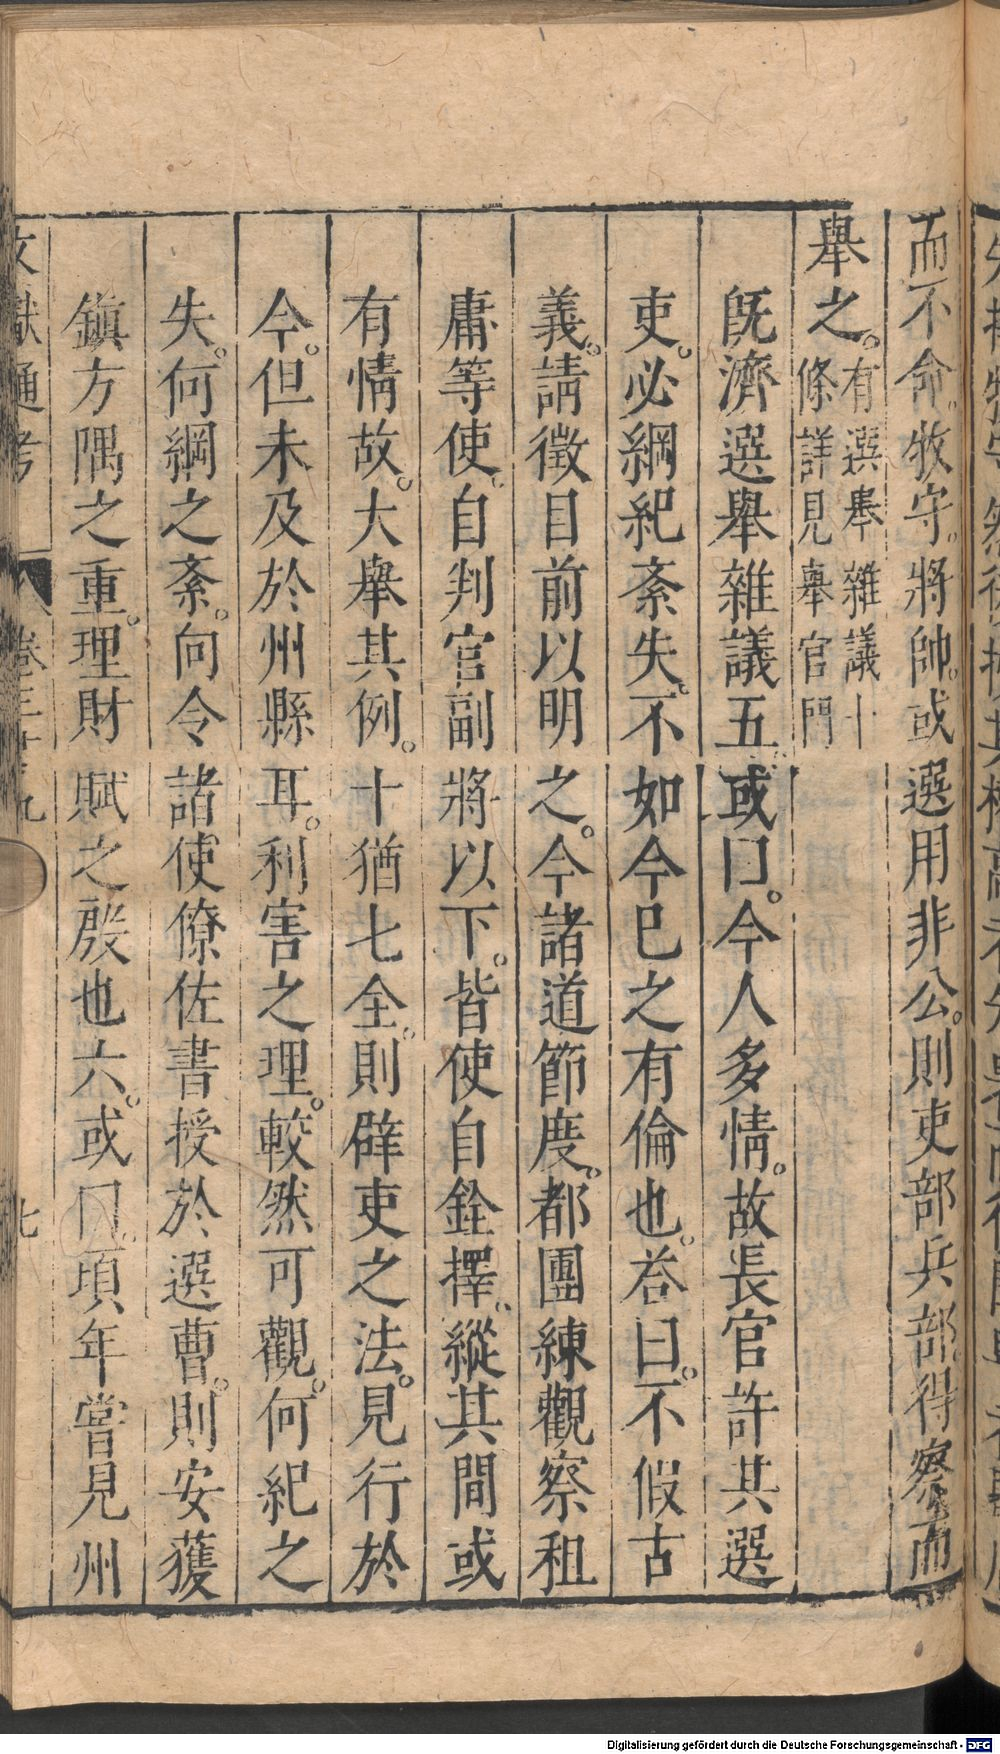 而不命。牧守。將帥。或選用非公。則吏部兵部。得察而
舉之。有選舉雜議十條詳見舉官門
旣濟選舉雜議五。或曰。今人多情。故長官許其選
吏。必綱紀紊失。不如今巳之有倫也。荅曰。不假古
義。請徵目前以明之。今諸道節度。都團練觀察租
庸等使。自判官副將以下。皆使自銓擇。縱其間或
有情故。大舉其例。十猶七全。則辟吏之法。見行於
今。但未及於州縣耳。利害之理。較然可觀。何紀之
失。何綱之紊。向令諸使僚佐書授於選曹。則安獲
鎮方隅之重。理財賦之殷也六。或曰。頃年嘗見州
文獻通考 卷三十九 七
Digitalisierung gefördert durch die Deutsche Forschungsgemeinschaft - DFG